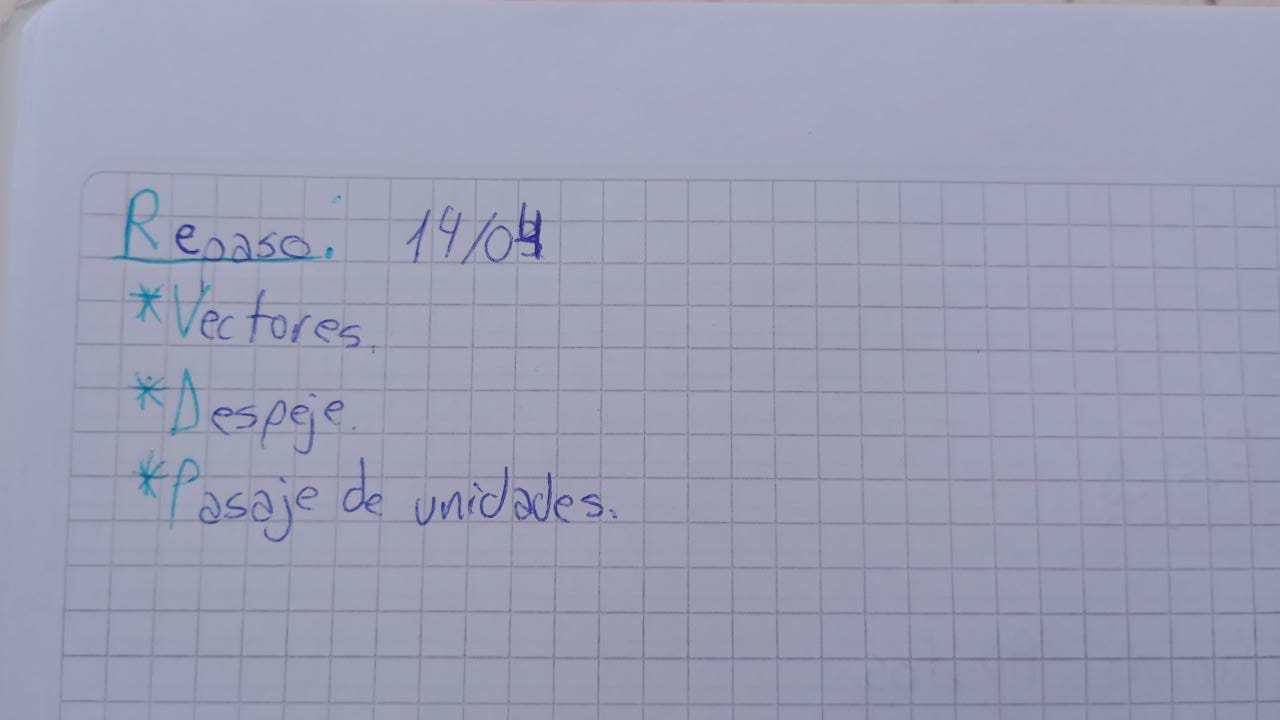 Repaso. 14/04
*Vectores.
*Despeje.
*Pasaje de unidades.